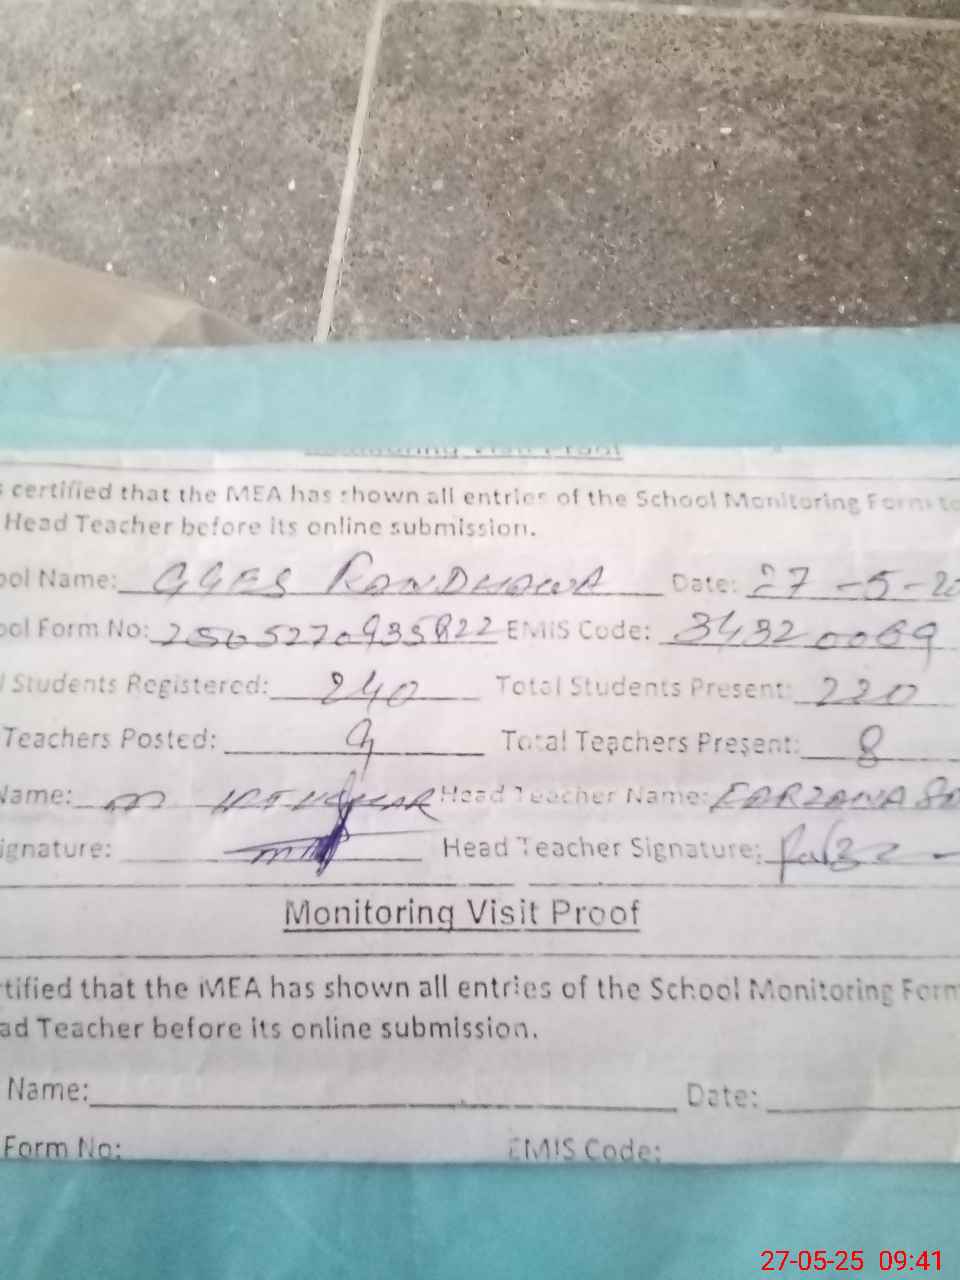 s certified that the MEA has shown all entries of the School Monitoring Form to
Head Teacher before its online submission.
ool Name: GGES RANDHAWA Date: 27-5-20
ool Form No: 2505270935822 EMIS Code: 34320069
l Students Registered: 240 Total Students Present: 220
Teachers Posted: 9 Total Teachers Present: 8
Name: M Head Teacher Name: FARZANA
ignature: Head Teacher Signature:
Monitoring Visit Proof
rtified that the MEA has shown all entries of the School Monitoring Form
ad Teacher before its online submission.
Name: Date:
Form No: EMIS Code:
27-05-25 09:41